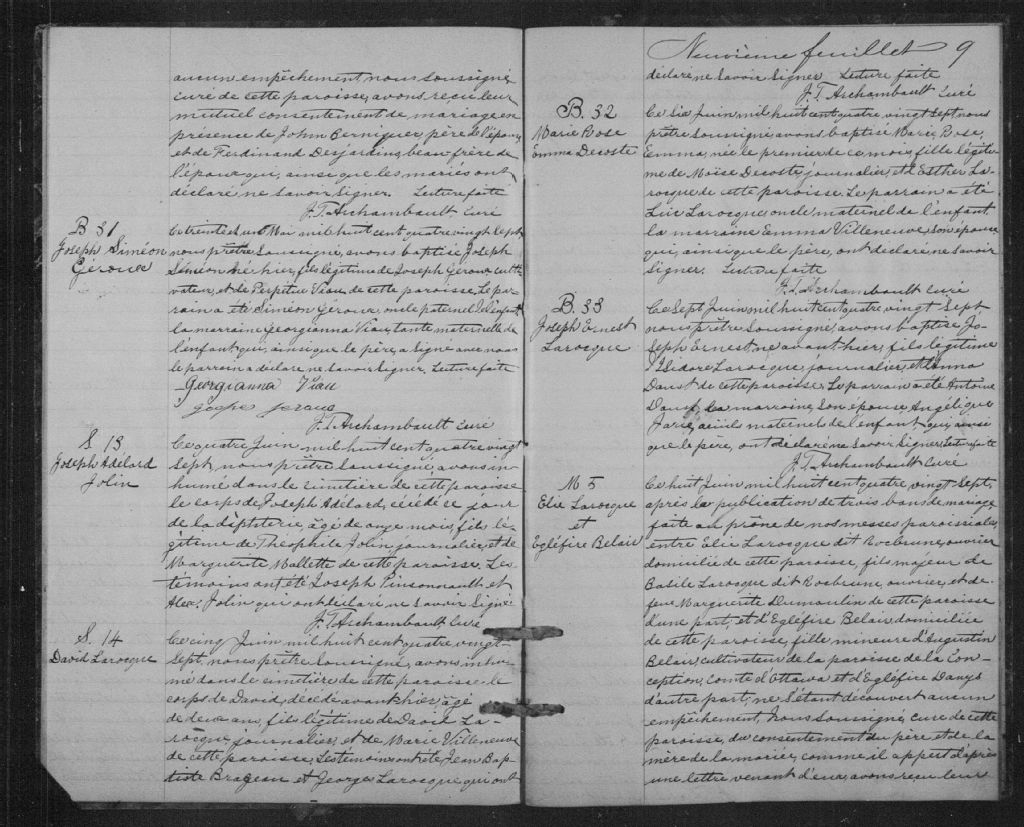 aucun empêchement, nous soussigné,
curé de cette paroisse, avons reçu leur
mutuel consentement de mariage en
présence de John Berniquer père de l'époux
et de Ferdinand Desjardins, beau-frère de
l'époux qui, ainsi que les mariés ont
déclaré ne savoir signer. Lecture faite
J.T. Archambault Curé
B 31
Joseph Siméon
Géroux
Ce trente et un Mai mil huit cent quatre vingt sept
nous prêtre soussigné, avons baptisé Joseph
Siméon né hier, fils légitime de Joseph Géroux culti-
vateur, et de Perpetue Viau de cette paroisse. Le par-
rain a été Siméon Géroux, oncle paternel de l'enfant
la marraine Georgianna Viau, tante maternelle de
l'enfant qui, ainsi que le père, a signé avec nous
le parrain a déclaré ne savoir signer. Lecture faite
Georgianna Viau
J.T. Archambault Curé
S 13
Joseph Adélard
Jolin
Ce quatre Juin mil huit cent quatre vingt
sept, nous prêtre soussigné, avons in-
humé dans le cimetière de cette paroisse
le corps de Joseph Adélard, décédé ce jour
de la dipterie, âgé de onze mois, fils lé-
gitime de Théophile Jolin, journalier, et de
Marguerite Mallette de cette paroisse. Les
témoins ont été Joseph Pinsonnault et
Alex. Jolin qui ont déclaré ne savoir signé.
J.T. Archambault, Curé
S. 14
David Larocque
Ce cinq Juin mil huit cent quatre vingt-
sept, nous prêtre soussigné, avons inhu-
mé dans le cimetière de cette paroisse le
corps de David, décédé avant hier, âgé
de deux ans, fils légitime de David La-
rocque, journalier, et de Marie Villeneuve
de cette paroisse. Les témoins ont été Jean Bap-
tiste Brazeau et George Larocque qui ont
Neuvième feuillet 9
déclaré ne savoir signer. Lecture faite
J.T. Archambault Curé
B. 32
Marie Rose
Emma Decoste
Ce six Juin mil huit cent quatre vingt sept, nous
prêtre soussigné avons baptisé Marie, Rose,
Emma, née le premier de ce mois, fille légiti-
me de Moïse Decoste, journalier, et d'Esther La-
rocque de cette paroisse. Le parrain a été
Luc Larocque, oncle maternel de l'enfant
la marraine Emma Villeneuve, son épouse
qui, ainsi que le père, ont déclaré ne savoir
signer. Lecture faite
J.T. Archambault Curé
B. 33
Joseph Ernest
Larocque
Ce sept Juin mil huit cent quatre vingt sept,
nous prêtre soussigné, avons baptisé Jo-
seph Ernest, né avant hier, fils légitime
d'Isidore Larocque, journalier, et d'Anna
Daust de cette paroisse. Le parrain a été Antoine
Daust, la marraine, son épouse Angélique
Paris, aieuls maternel de l'enfant qui, ainsi
que le père, ont déclaré ne savoir signer. Lecture faite
J.T. Archambault Curé
M 5
Elie Larocque
et
Egléfire Belair
Ce huit Juin mil huit cent quatre vingt sept,
après la publication de trois bans de mariage
faite au prône de nos messes paroissiales,
entre Elie Larocque dit Rocbrune, ouvrier
domicilié de cette paroisse, fils majeur de
Basile Larocque dit Rocbrune, ouvrier, et de
feue Marguerite Dumoulin de cette paroisse
d'une part, et d'Egléfire Belair, domiciliée
de cette paroisse, fille mineure d'Augustin
Belair, cultivateur de la paroisse de la Con-
ception, comté d'Ottawa et d'Egléfire Danys
d'autre part; ne s'étant découvert aucun
empêchement, Nous soussigné, curé de cette
paroisse, du consentement du père et de la
mère de la mariée, comme il appert d'après
une lettre venant d'eux, avons reçu leur